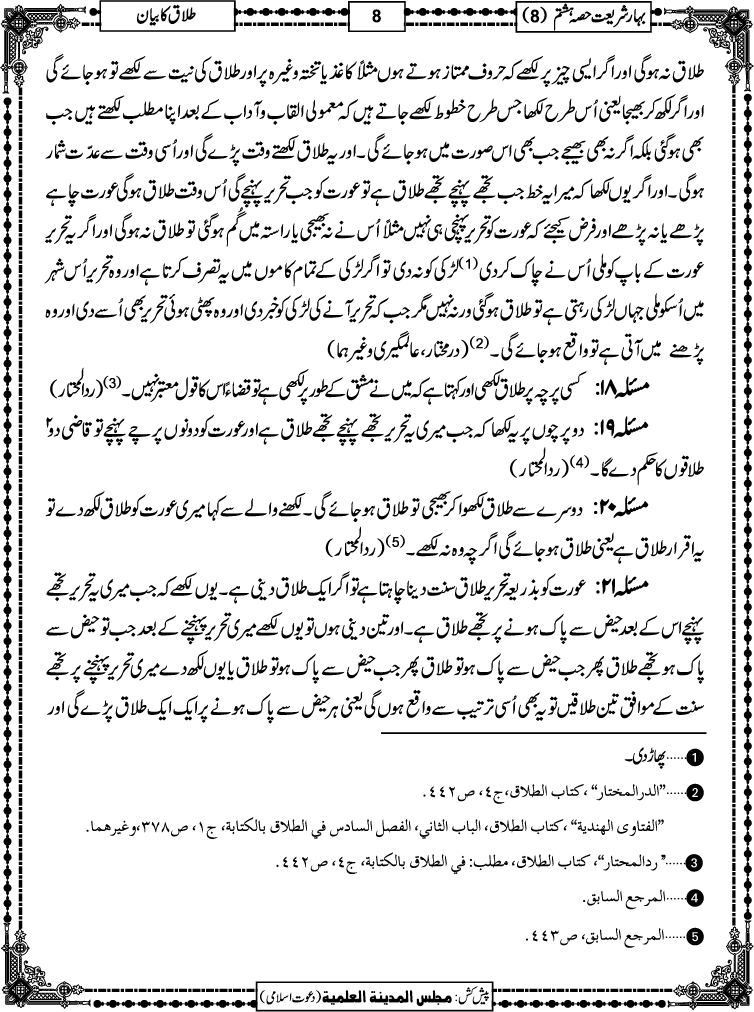 بہارشریعت حصہ ہشتم (8)
8
طلاق کا بیان
طلاق نہ ہوگی اور اگر ایسی چیز پر لکھے کہ حروف ممتاز ہوتے ہوں مثلاً کاغذ یا تختہ وغیرہ پر اور طلاق کی نیت سے لکھے تو ہو جائے گی
اور اگر لکھ کر بھیجا یعنی اُس طرح لکھا جس طرح خطوط لکھے جاتے ہیں کہ معمولی القاب وآداب کے بعد اپنا مطلب لکھتے ہیں جب
بھی ہوگئی بلکہ اگر نہ بھی بھیجے جب بھی اس صورت میں ہو جائے گی۔ اور یہ طلاق لکھتے وقت پڑے گی اور اُسی وقت سے عدّت شمار
ہوگی۔ اور اگر یوں لکھا کہ میرا یہ خط جب تجھے پہنچے تجھے طلاق ہے تو عورت کو جب تحریر پہنچے گی اُس وقت طلاق ہوگی عورت چاہے
پڑھے یا نہ پڑھے اور فرض کیجئے کہ عورت کو تحریر پہنچی ہی نہیں مثلاً اُس نے نہ بھیجی یا راستہ میں گم ہوگئی تو طلاق نہ ہوگی اور اگر یہ تحریر
عورت کے باپ کو ملی اُس نے چاک کردی(1) لڑکی کو نہ دی تو اگر لڑکی کے تمام کاموں میں یہ تصرف کرتا ہے اور وہ تحریر اُس شہر
میں اُسکو ملی جہاں لڑکی رہتی ہے تو طلاق ہوگئی ورنہ نہیں مگر جب کہ تحریر آنے کی لڑکی کو خبر دی اور وہ پھٹی ہوئی تحریر بھی اُسے دی اور وہ
پڑھنے میں آتی ہے تو واقع ہو جائے گی۔(2) (درمختار، عالمگیری وغیرہما)
مسئلہ ۱۸: کسی پرچہ پر طلاق لکھی اور کہتا ہے کہ میں نے مشق کے طور پر لکھی ہے تو قضاءً اس کا قول معتبر نہیں۔(3) (ردالمحتار)
مسئلہ ۱۹: دو پرچوں پر یہ لکھا کہ جب میری یہ تحریر تجھے پہنچے تجھے طلاق ہے اور عورت کو دونوں پرچے پہنچے تو قاضی دو۲
طلاقوں کا حکم دے گا۔(4) (ردالمحتار)
مسئلہ ۲۰: دوسرے سے طلاق لکھوا کر بھیجی تو طلاق ہو جائے گی۔ لکھنے والے سے کہا میری عورت کو طلاق لکھ دے تو
یہ اقرار طلاق ہے یعنی طلاق ہو جائے گی اگرچہ وہ نہ لکھے۔(5) (ردالمحتار)
مسئلہ ۲۱: عورت کو بذریعہ تحریر طلاق سنت دینا چاہتا ہے تو اگر ایک طلاق دینی ہے۔ یوں لکھے کہ جب میری یہ تحریر تجھے
پہنچے اس کے بعد حیض سے پاک ہونے پر تجھے طلاق ہے۔ اور تین دینی ہوں تو یوں لکھے میری تحریر پہنچنے کے بعد جب تو حیض سے
پاک ہو تجھے طلاق پھر جب حیض سے پاک ہو تو طلاق پھر جب حیض سے پاک ہو تو طلاق یا یوں لکھ دے میری تحریر پہنچنے پر تجھے
سنت کے موافق تین طلاقیں تو یہ بھی اُسی ترتیب سے واقع ہوں گی یعنی ہر حیض سے پاک ہونے پر ایک ایک طلاق پڑے گی اور
1......پھاڑ دی۔
2......"الدرالمختار"، كتاب الطلاق، ج٤، ص٤٤٢.
"الفتاوى الهندية"، كتاب الطلاق، الباب الثاني، الفصل السادس في الطلاق بالكتابة، ج١، ص٣٧٨، وغيرهما.
3......"ردالمحتار"، كتاب الطلاق، مطلب: في الطلاق بالكتابة، ج٤، ص٤٤٢.
4......المرجع السابق.
5......المرجع السابق، ص٤٤٣.
پیش کش: مجلس المدينة العلمية (دعوت اسلامی)